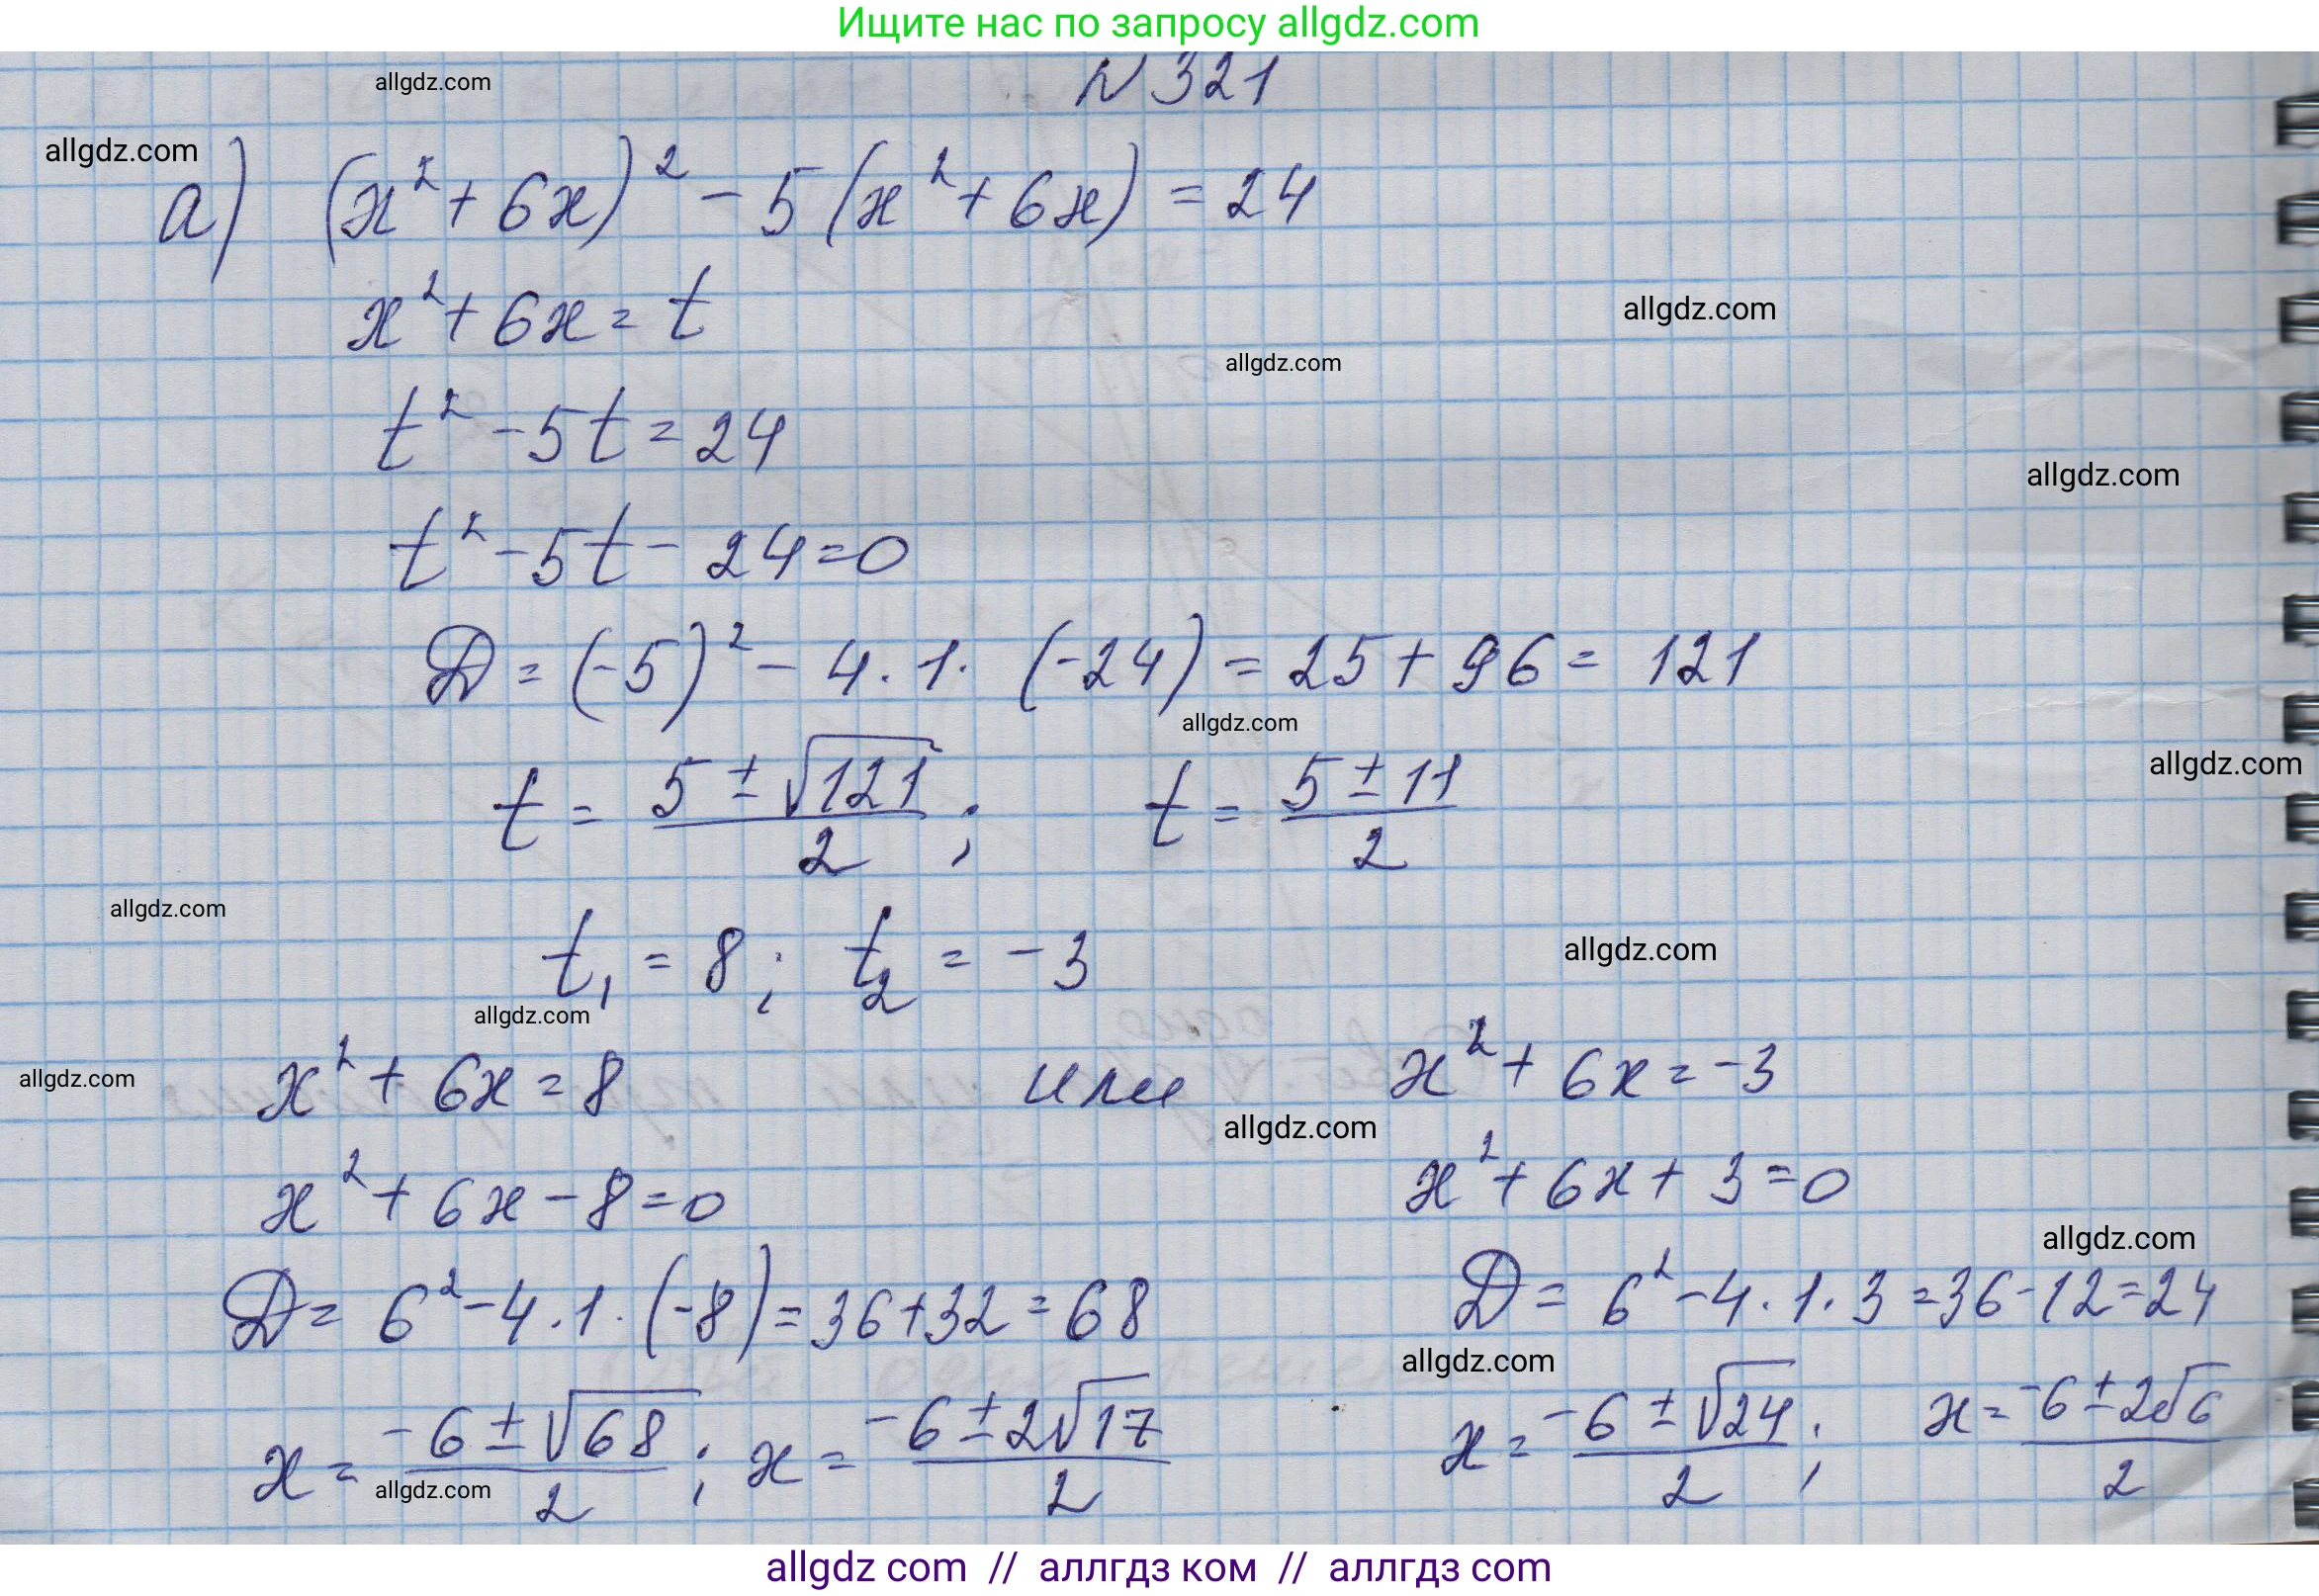 Ищите нас по запросу allgdz.com
allgdz.com
N 321
allgdz.com
а) (x² + 6x)² - 5(x² + 6x) = 24
x² + 6x = t
allgdz.com
allgdz.com
t² - 5t = 24
allgdz.com
t² - 5t - 24 = 0
D = (-5)² - 4 · 1 · (-24) = 25 + 96 = 121
allgdz.com
allgdz.com
t = (5 ± √121)/2 ; t = (5 ± 11)/2
allgdz.com
t₁ = 8 ; t₂ = -3
allgdz.com
allgdz.com
allgdz.com
x² + 6x = 8 или x² + 6x = -3
allgdz.com
x² + 6x - 8 = 0 x² + 6x + 3 = 0
allgdz.com
D = 6² - 4 · 1 · (-8) = 36 + 32 = 68 D = 6² - 4 · 1 · 3 = 36 - 12 = 24
allgdz.com
x = (-6 ± √68)/2 ; x = (-6 ± 2√17)/2 x = (-6 ± √24)/2 ; x = (-6 ± 2√6)/2
allgdz.com
allgdz com // аллгдз ком // аллгдз com